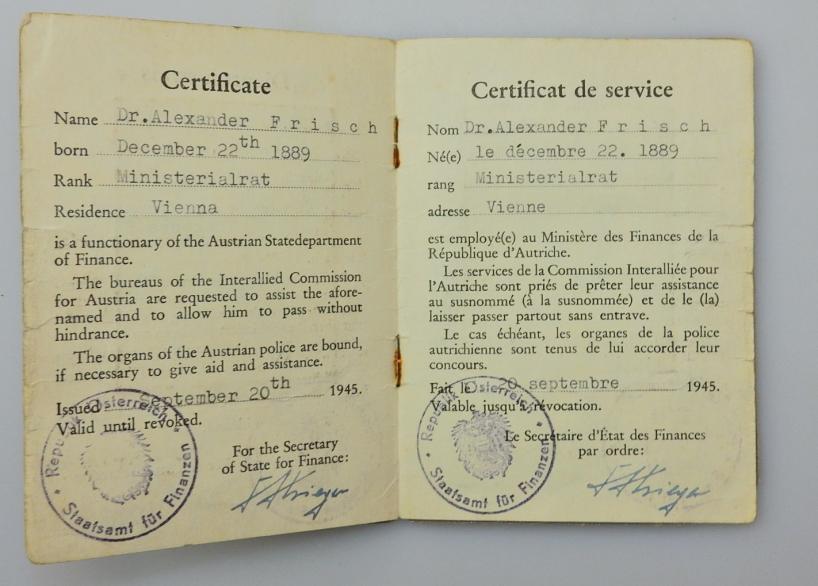 Certificate
Name Dr.Alexander F r i s c h
born December 22th 1889
Rank Ministerialrat
Residence Vienna
is a functionary of the Austrian Statedepartment
of Finance.
The bureaus of the Interallied Commission
for Austria are requested to assist the afore-
named and to allow him to pass without
hindrance.
The organs of the Austrian police are bound,
if necessary to give aid and assistance.
Issued September 20th 1945.
Valid until revoked.
For the Secretary
of State for Finance:
Republik Österreich
Staatsamt für Finanzen
Certificat de service
Nom Dr.Alexander F r i s c h
Né(e) le décembre 22. 1889
rang Ministerialrat
adresse Vienne
est employé(e) au Ministère des Finances de la
République d'Autriche.
Les services de la Commission Interalliée pour
l'Autriche sont priés de prêter leur assistance
au susnommé (à la susnommée) et de le (la)
laisser passer partout sans entrave.
Le cas échéant, les organes de la police
autrichienne sont tenus de lui accorder leur
concours.
Fait, le 20 septembre 1945.
Valable jusqu'à révocation.
Le Secrétaire d'État des Finances
par ordre:
Republik Österreich
Staatsamt für Finanzen